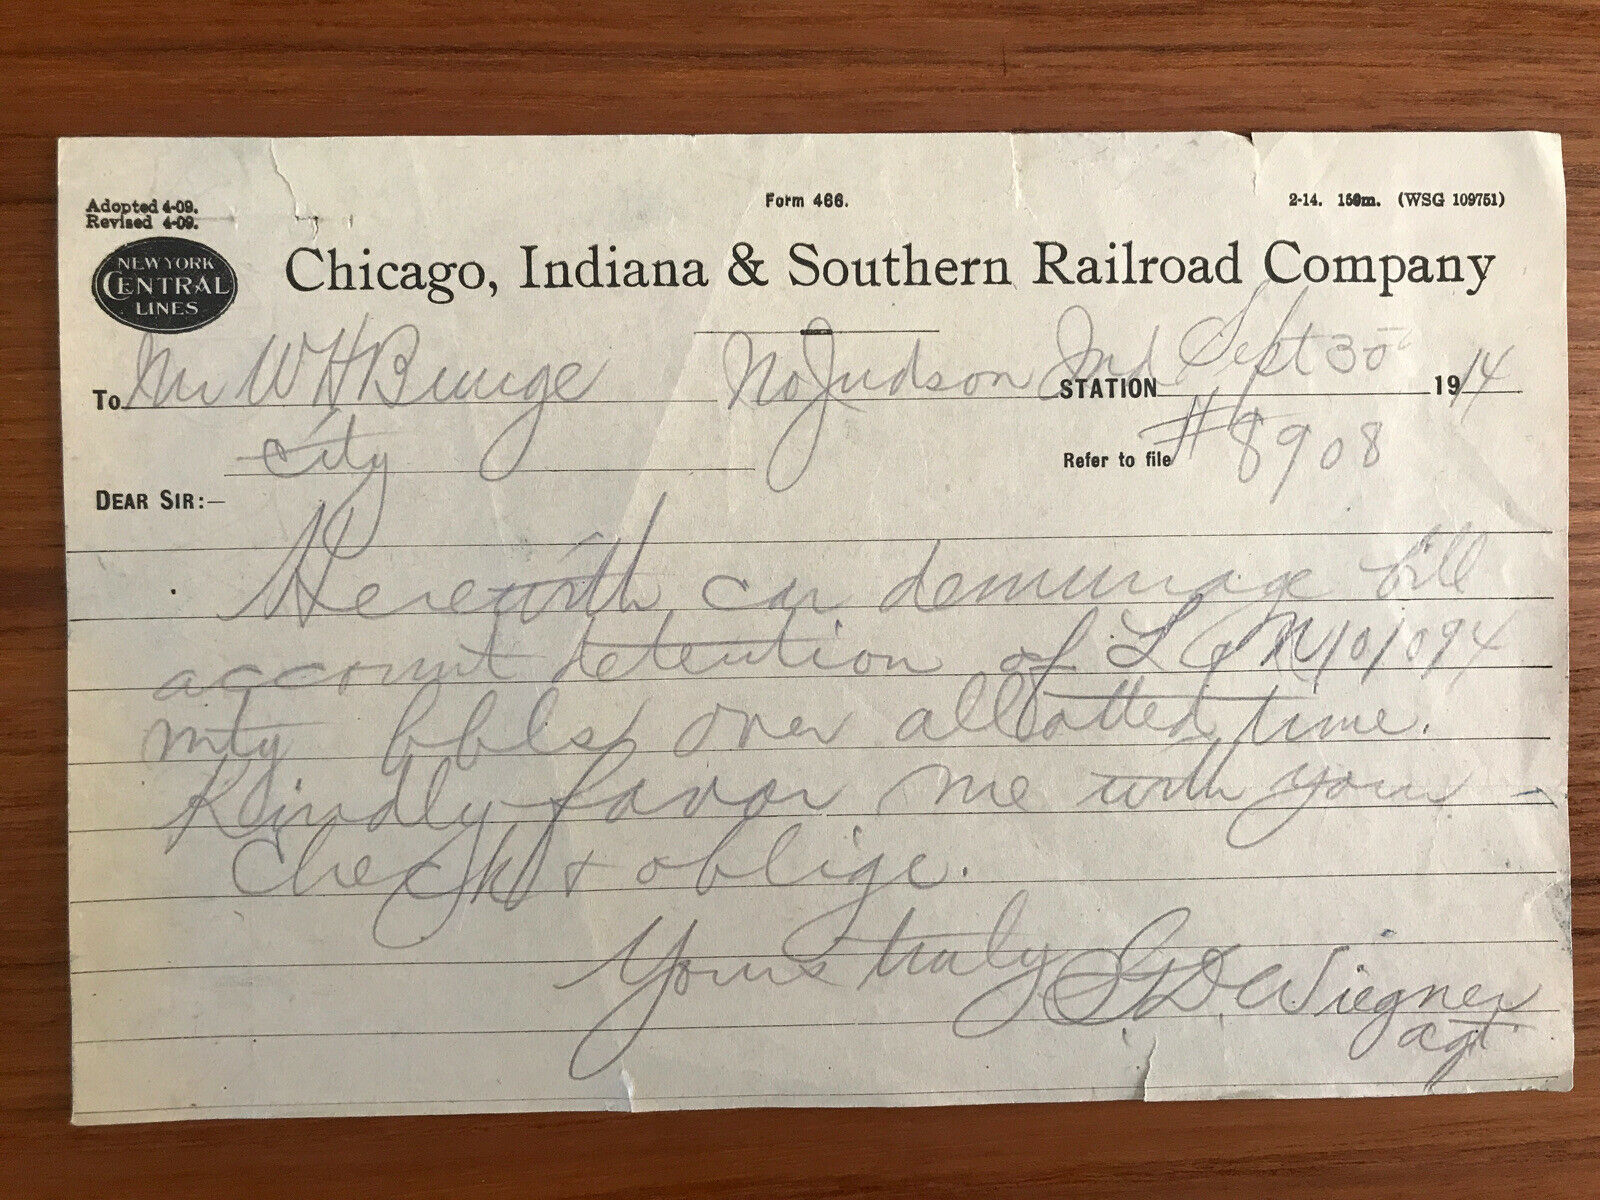 Adopted 4-09.
Revised 4-09.
Form 466.
2-14. 150m. (WSG 109751)
NEW YORK
CENTRAL
LINES
Chicago, Indiana & Southern Railroad Company
To Mr W H Bunge No Judson Ind STATION Sept 30 1914
City
Refer to file # 8908
DEAR SIR:—
Herewith car demurrage bill
account detention of L & N 101094
mty bbls over allotted time.
Kindly favor me with your
check & oblige.
Yours truly S D Wiegner
agt